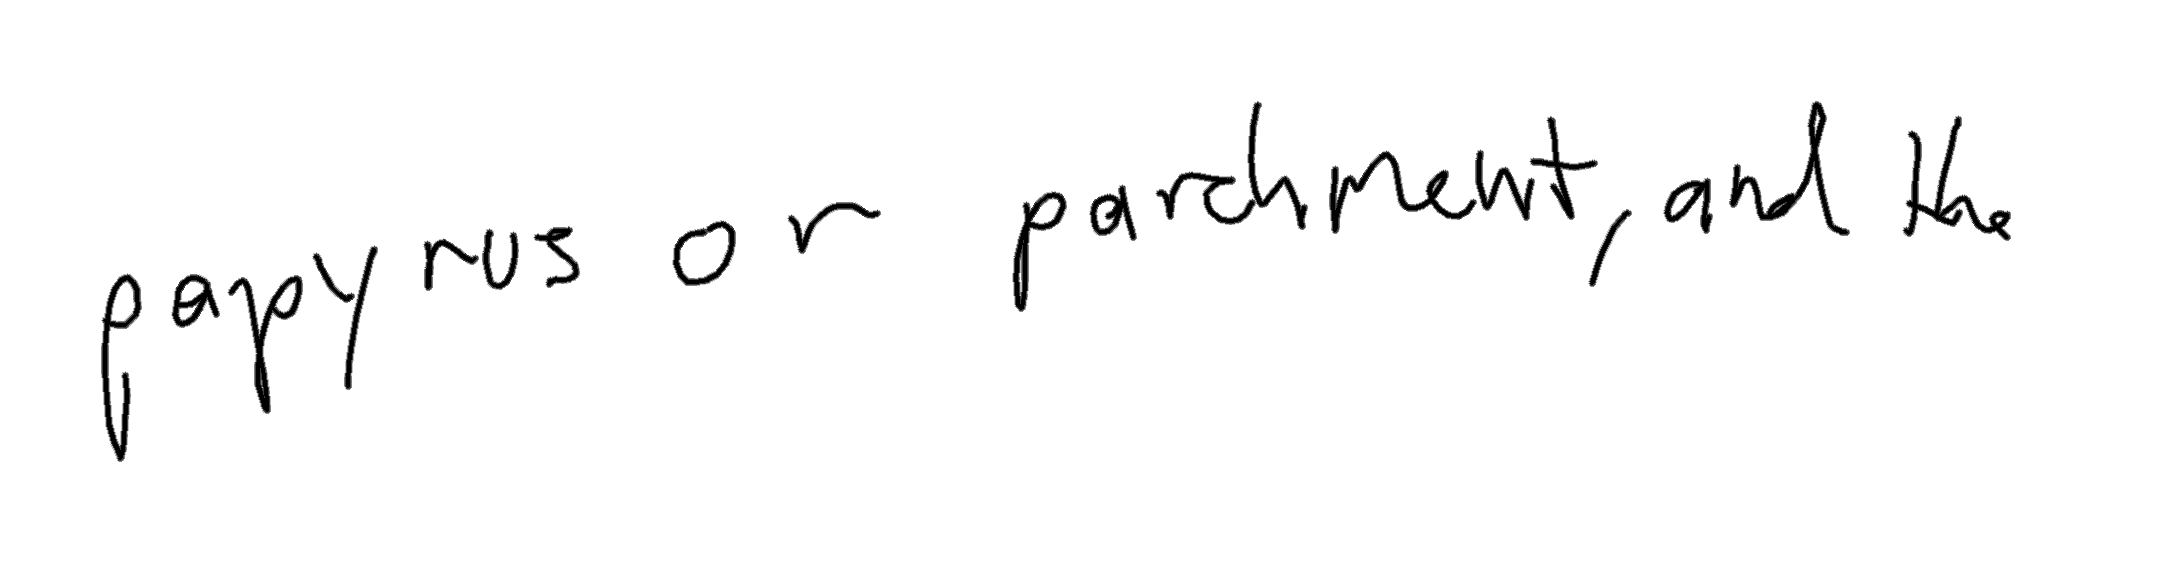 papyrus or parchment, and the